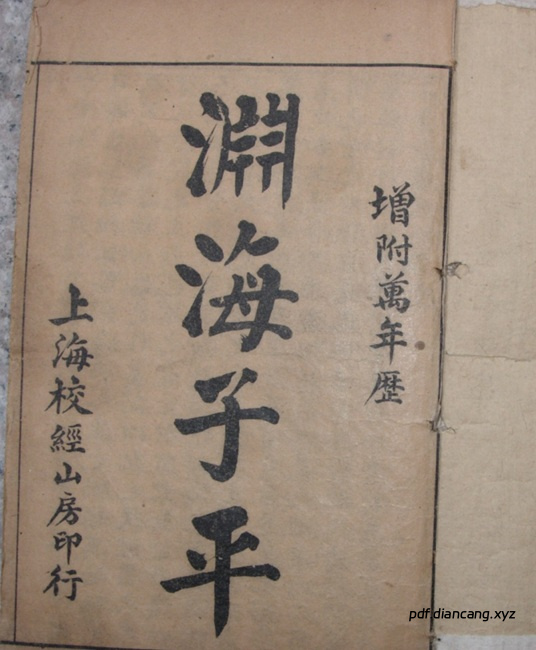 增附萬年歷
淵海子平
上海校經山房印行
pdf.diancang.xyz